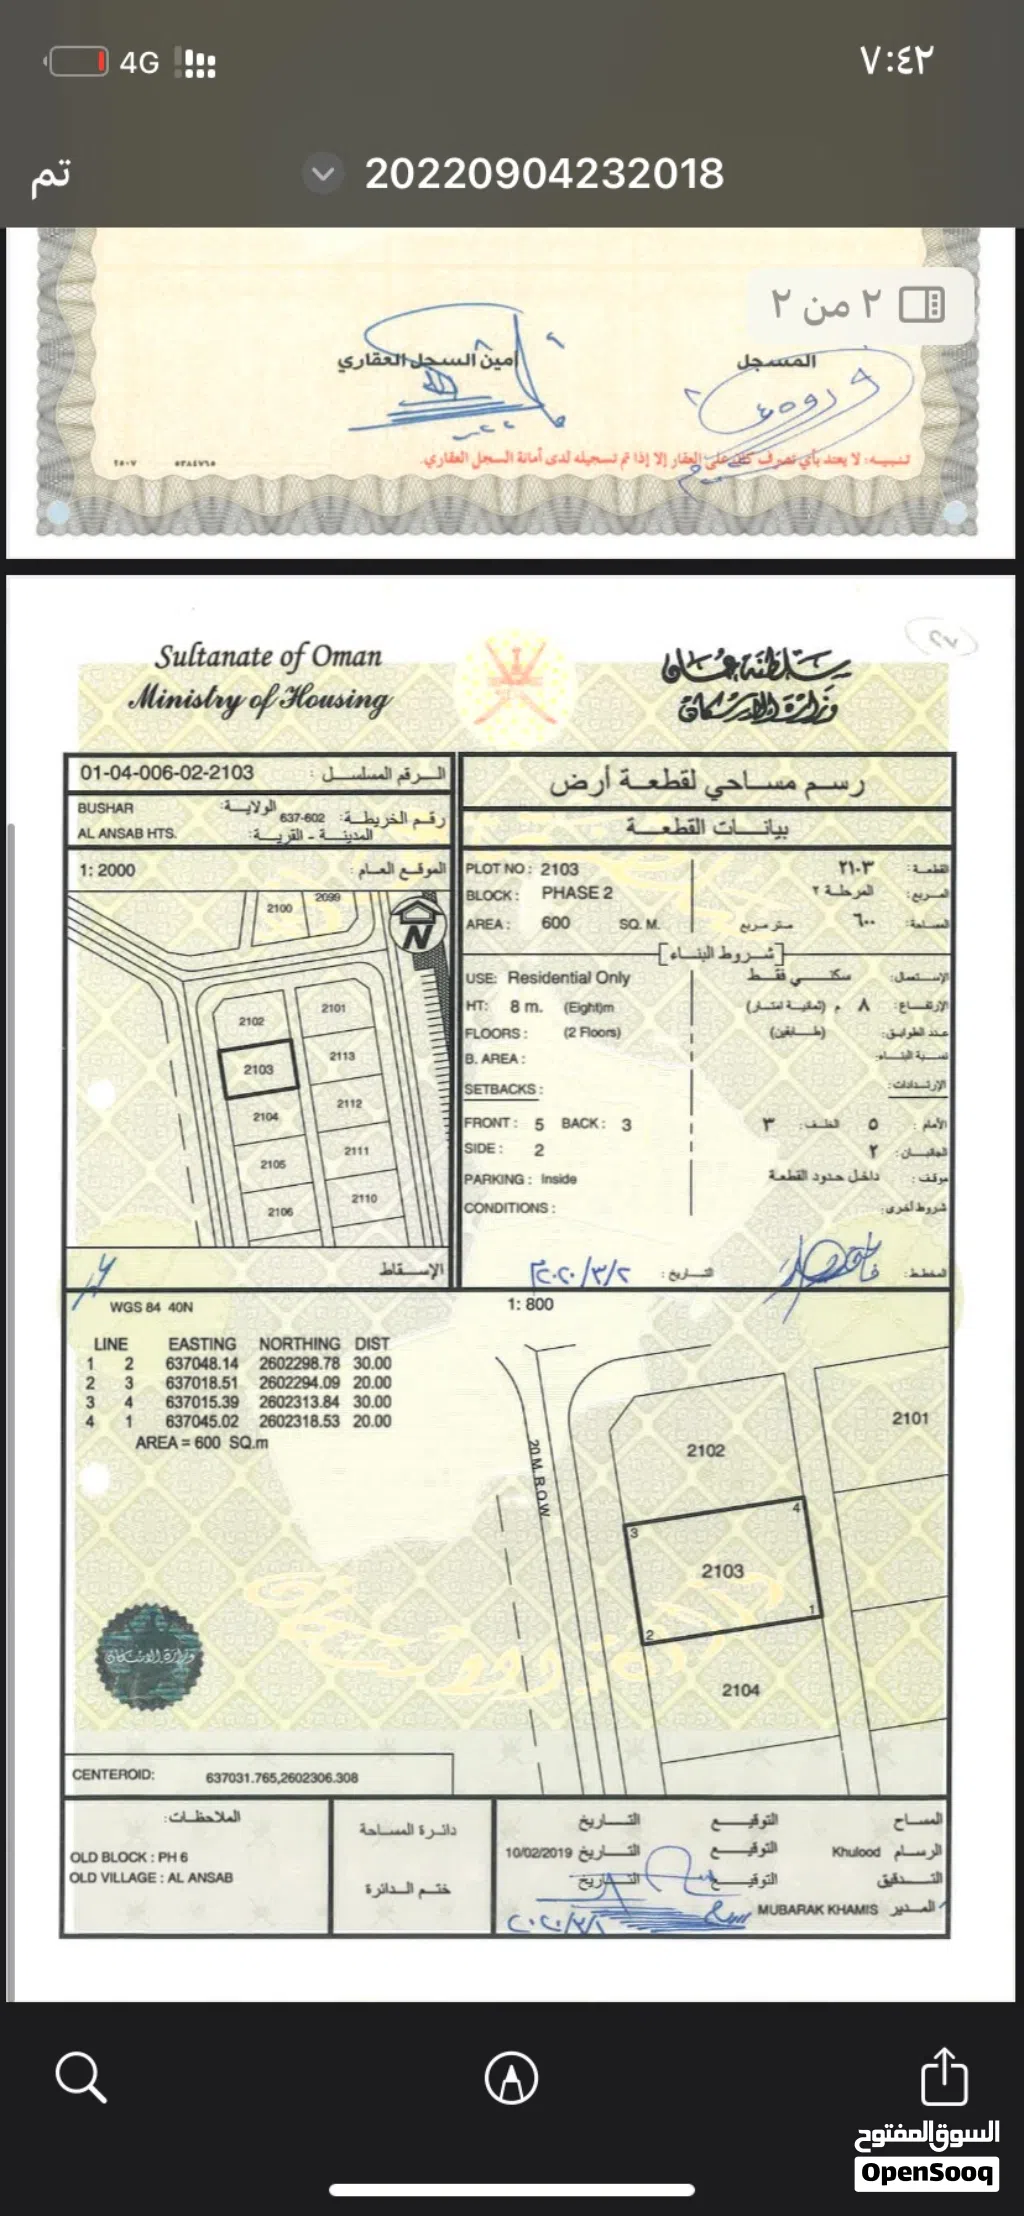 4G ٧:٤٢
تم 20220904232018
٢ من ٢
أمين السجل العقاري المسجل
تنبيه: لا يعتد بأي تصرف كان على العقار إلا إذا تم تسجيله لدى أمانة السجل العقاري.
Sultanate of Oman
Ministry of Housing
سلطنة عمان
وزارة الإسكان
01-04-006-02-2103 الرقم المسلسل :
BUSHAR الولاية:
637-602 رقم الخريطة:
AL ANSAB HTS. المدينة - القرية:
1: 2000 الموقع العام :
2100
2099
N
2102
2101
2103
2113
2104
2112
2105
2111
2106
2110
الإسقاط
رسم مساحي لقطعة أرض
بيانات القطعة
PLOT NO : 2103 القطعة: ٢١٠٣
BLOCK : PHASE 2 المربع: المرحلة ٢
AREA : 600 SQ. M. المساحة: ٦٠٠ متر مربع
[شروط البناء]
USE: Residential Only الإستعمال: سكني فقط
HT: 8 m. (Eight)m الإرتفاع: ٨ م (ثمانية امتار)
FLOORS : (2 Floors) عدد الطوابق: (طابقين)
B. AREA : نسبة البناء:
SETBACKS : الإرتدادات:
FRONT : 5 BACK : 3 الأمام : ٥ الخلف: ٣
SIDE : 2 الجانبان: ٢
PARKING : Inside موقف: داخل حدود القطعة
CONDITIONS : شروط أخرى:
المخطط: التاريخ : ٢٠٢٠/٣/٢
WGS 84 40N
1: 800
LINE EASTING NORTHING DIST
1 2 637048.14 2602298.78 30.00
2 3 637018.51 2602294.09 20.00
3 4 637015.39 2602313.84 30.00
4 1 637045.02 2602318.53 20.00
AREA = 600 SQ.m
20 M. R.O.W
2101
2102
4
3
2103
1
2
2104
وزارة الإسكان
CENTEROID: 637031.765,2602306.308
الملاحظات:
OLD BLOCK : PH 6
OLD VILLAGE : AL ANSAB
دائرة المساحة
ختم الدائرة
المساح التوقيع التاريخ
الرسام Khulood التوقيع التاريخ 10/02/2019
التدقيق التوقيع التاريخ
المدير MUBARAK KHAMIS
السوق المفتوح
OpenSooq